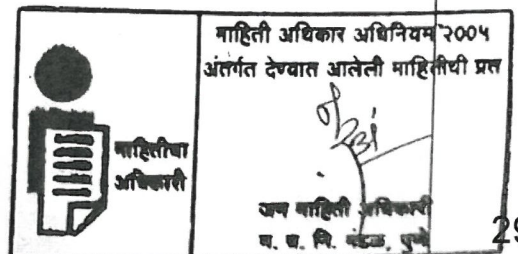 माहितीचा
अधिकारी
माहिती अधिकार अधिनियम २००५
अंतर्गत देण्यात आलेली माहितीची प्रत
जन माहिती अधिकारी
म. प्र. नि. मंडळ, पुणे
29